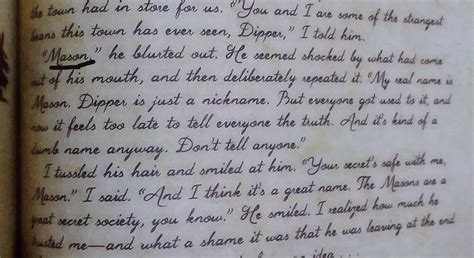 the town had in store for us. "You and I are some of the strangest
beans this town has ever seen, Dipper," I told him.
"Mason," he blurted out. He seemed shocked by what had come
out of his mouth, and then deliberately repeated it. "My real name is
Mason. Dipper is just a nickname. But everyone got used to it, and
now it feels too late to tell everyone the truth. And it's kind of a
dumb name anyway. Don't tell anyone."
I tussled his hair and smiled at him. "Your secret's safe with me,
Mason." I said. "And I think it's a great name. The Masons are a
great secret society, you know." He smiled. I realized how much he
trusted me—and what a shame it was that he was leaving at the end
idea...